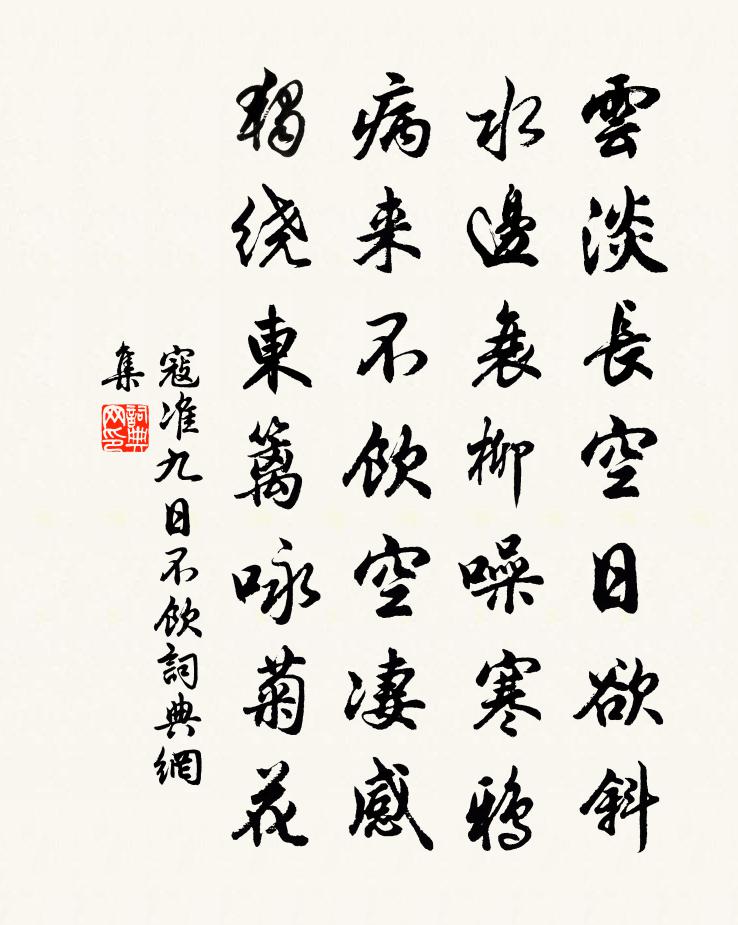 雲淡長空日欲斜
水邊衰柳噪寒鴉
病来不飲空凄感
獨绕東籬咏菊花
寇准九日不飲詞典網
集
詞典
网印